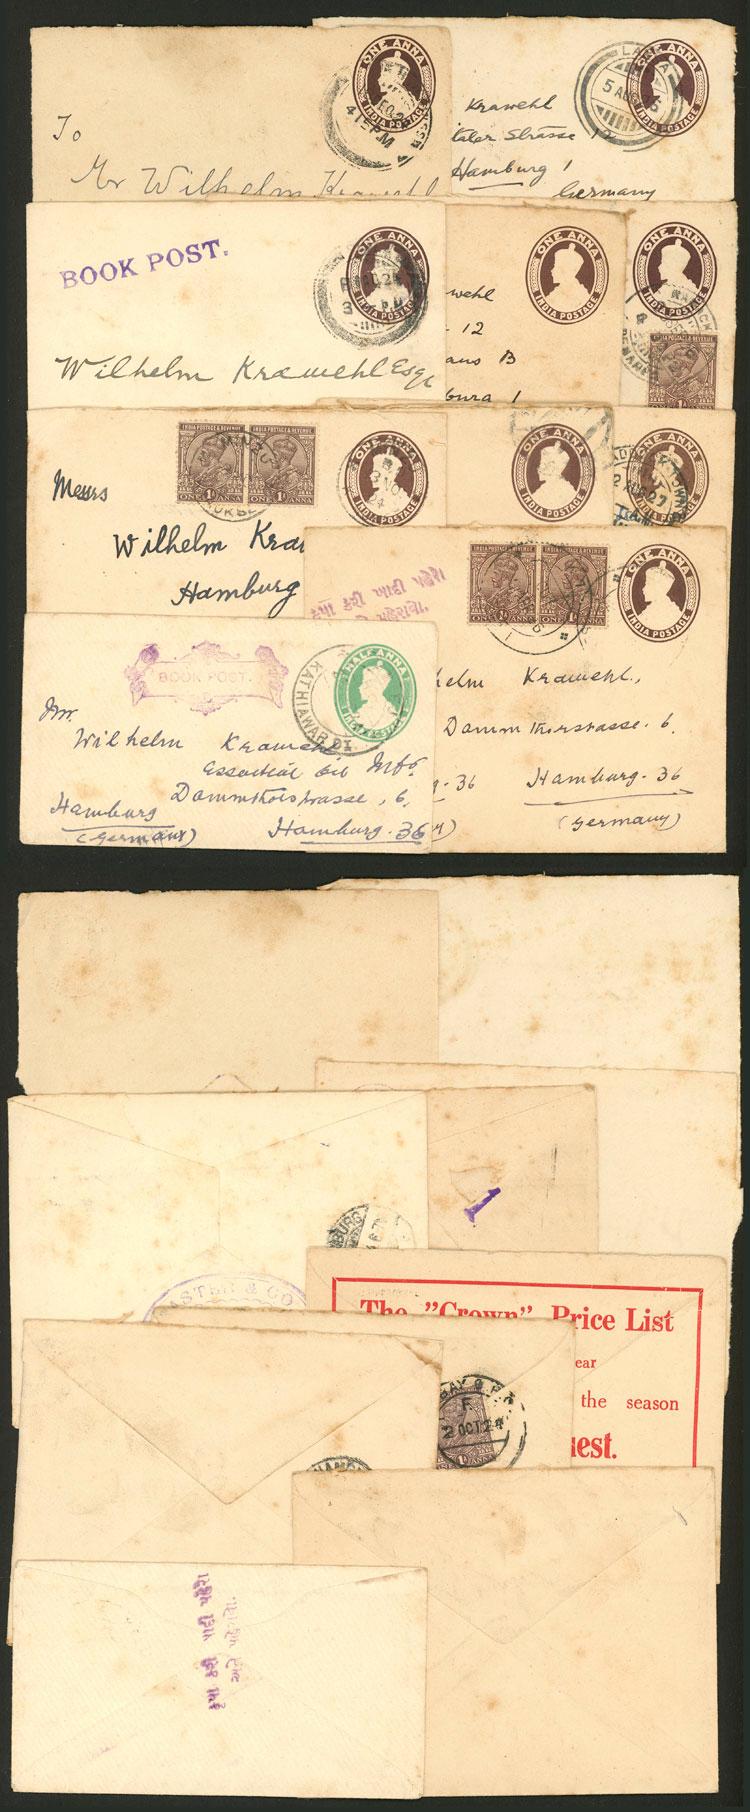 ONE ANNA
INDIA POSTAGE
41 5 PM
To
Mr Wilhelm Krawehl
ONE ANNA
INDIA POSTAGE
5 AUG
Krawehl
Strasse 12
Hamburg 1
Germany
BOOK POST.
ONE ANNA
INDIA POSTAGE
Wilhelm Krawehl Esq
ONE ANNA
INDIA POSTAGE
wehl
12
aus B
burg 1
ONE ANNA
INDIA POSTAGE
INDIA POSTAGE & REVENUE
ANNA
INDIA POSTAGE & REVENUE
INDIA POSTAGE & REVENUE
ONE 1A ANNA
ONE 1A ANNA
ONE ANNA
INDIA POSTAGE
Messrs
Wilhelm Kraw
Hamburg
ONE ANNA
INDIA POSTAGE
ONE ANNA
INDIA POSTAGE
27
INDIA POSTAGE & REVENUE
INDIA POSTAGE & REVENUE
ONE ANNA
ONE ANNA
ONE ANNA
INDIA POSTAGE
કરી ખાદી પહેરો
helm Krawehl,
Dammthorstrasse. 6.
36 Hamburg-36
(Germany)
BOOK POST.
HALF ANNA
INDIA POSTAGE
KATHIAWAR
Mr.
Wilhelm Krawehl
Essential Oil Mfg.
Dammthorstrasse, 6,
Hamburg
Hamburg-36
(Germany)
1
BURG
ASTER & CO
The "Crown" Price List
ear
the season
uest.
BAY G.P.O.
2 OCT 24
1A ANNA
HAMB